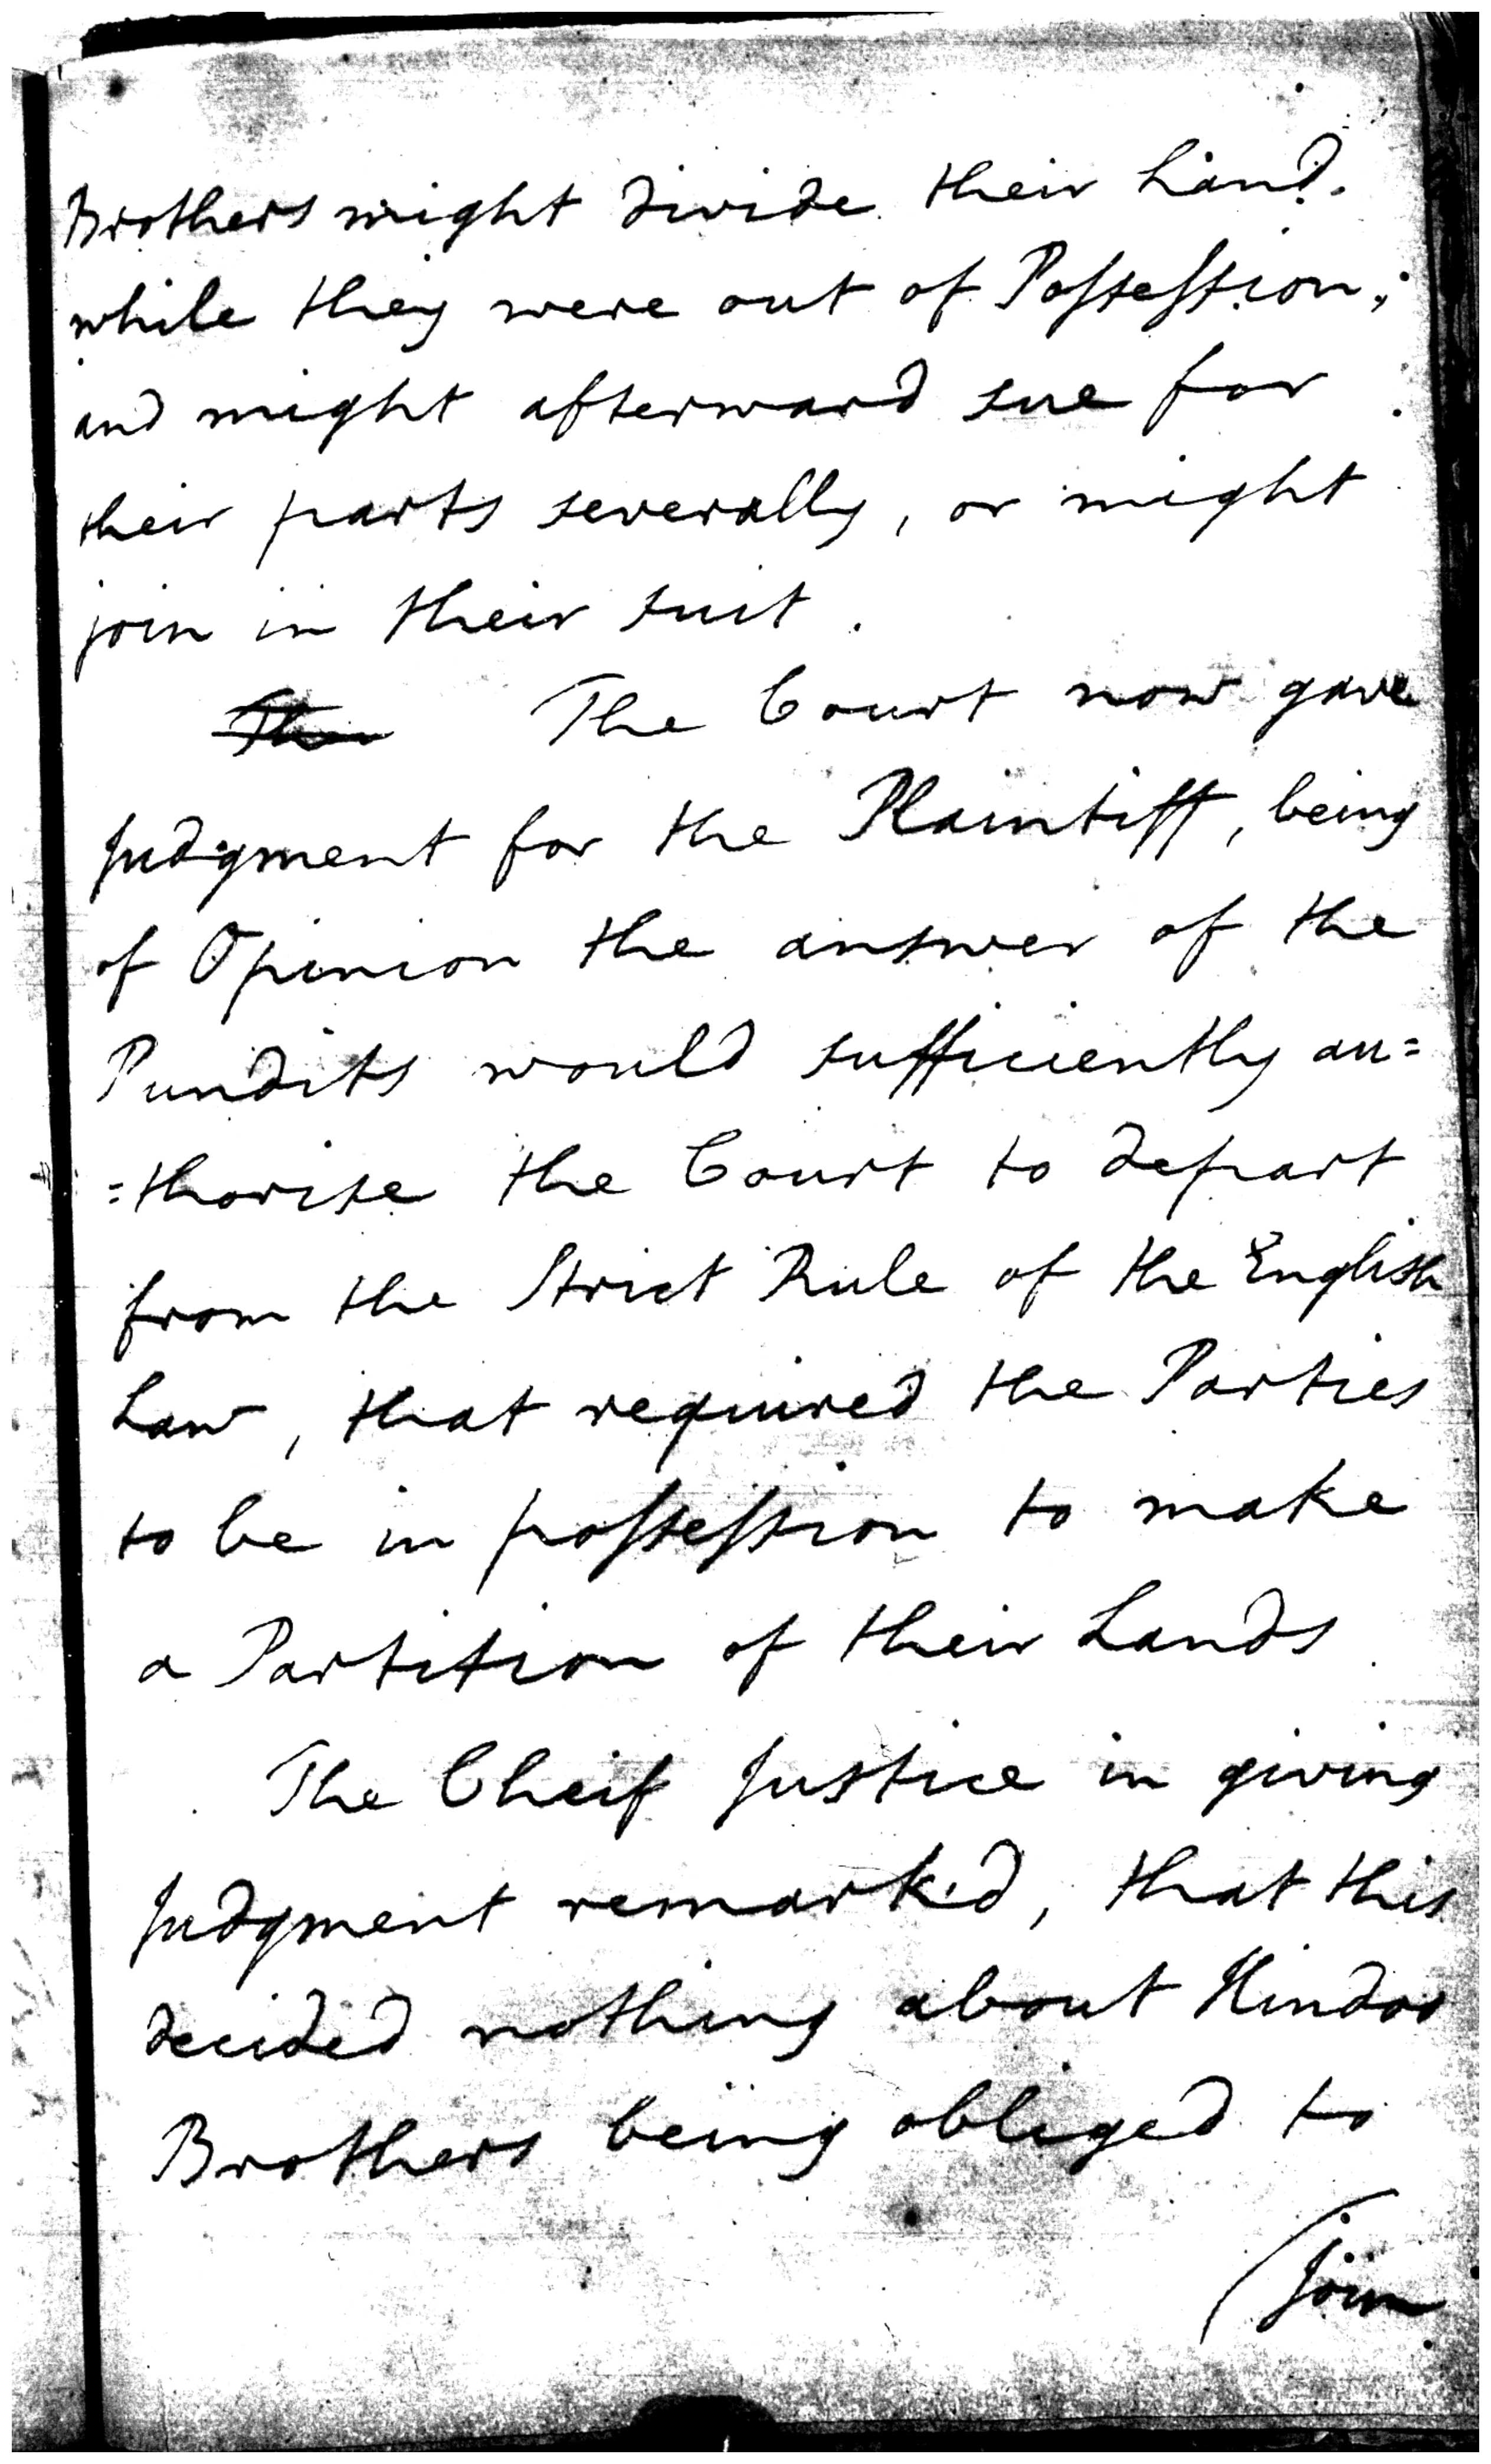 Brothers might divide their Land.
while they were out of Possession;
and might afterward sue for
their parts severally, or might
join in their suit.
The The Court now gave
Judgment for the Plaintiff, being
of Opinion the answer of the
Pundits would sufficiently au=
=thorise the Court to depart
from the Strict Rule of the English
Law, that required the Parties
to be in possession to make
a Partition of their Lands.
The Cheif Justice in giving
Judgment remark'd, that this
decided nothing about Hindoo
Brothers being obliged to
(join